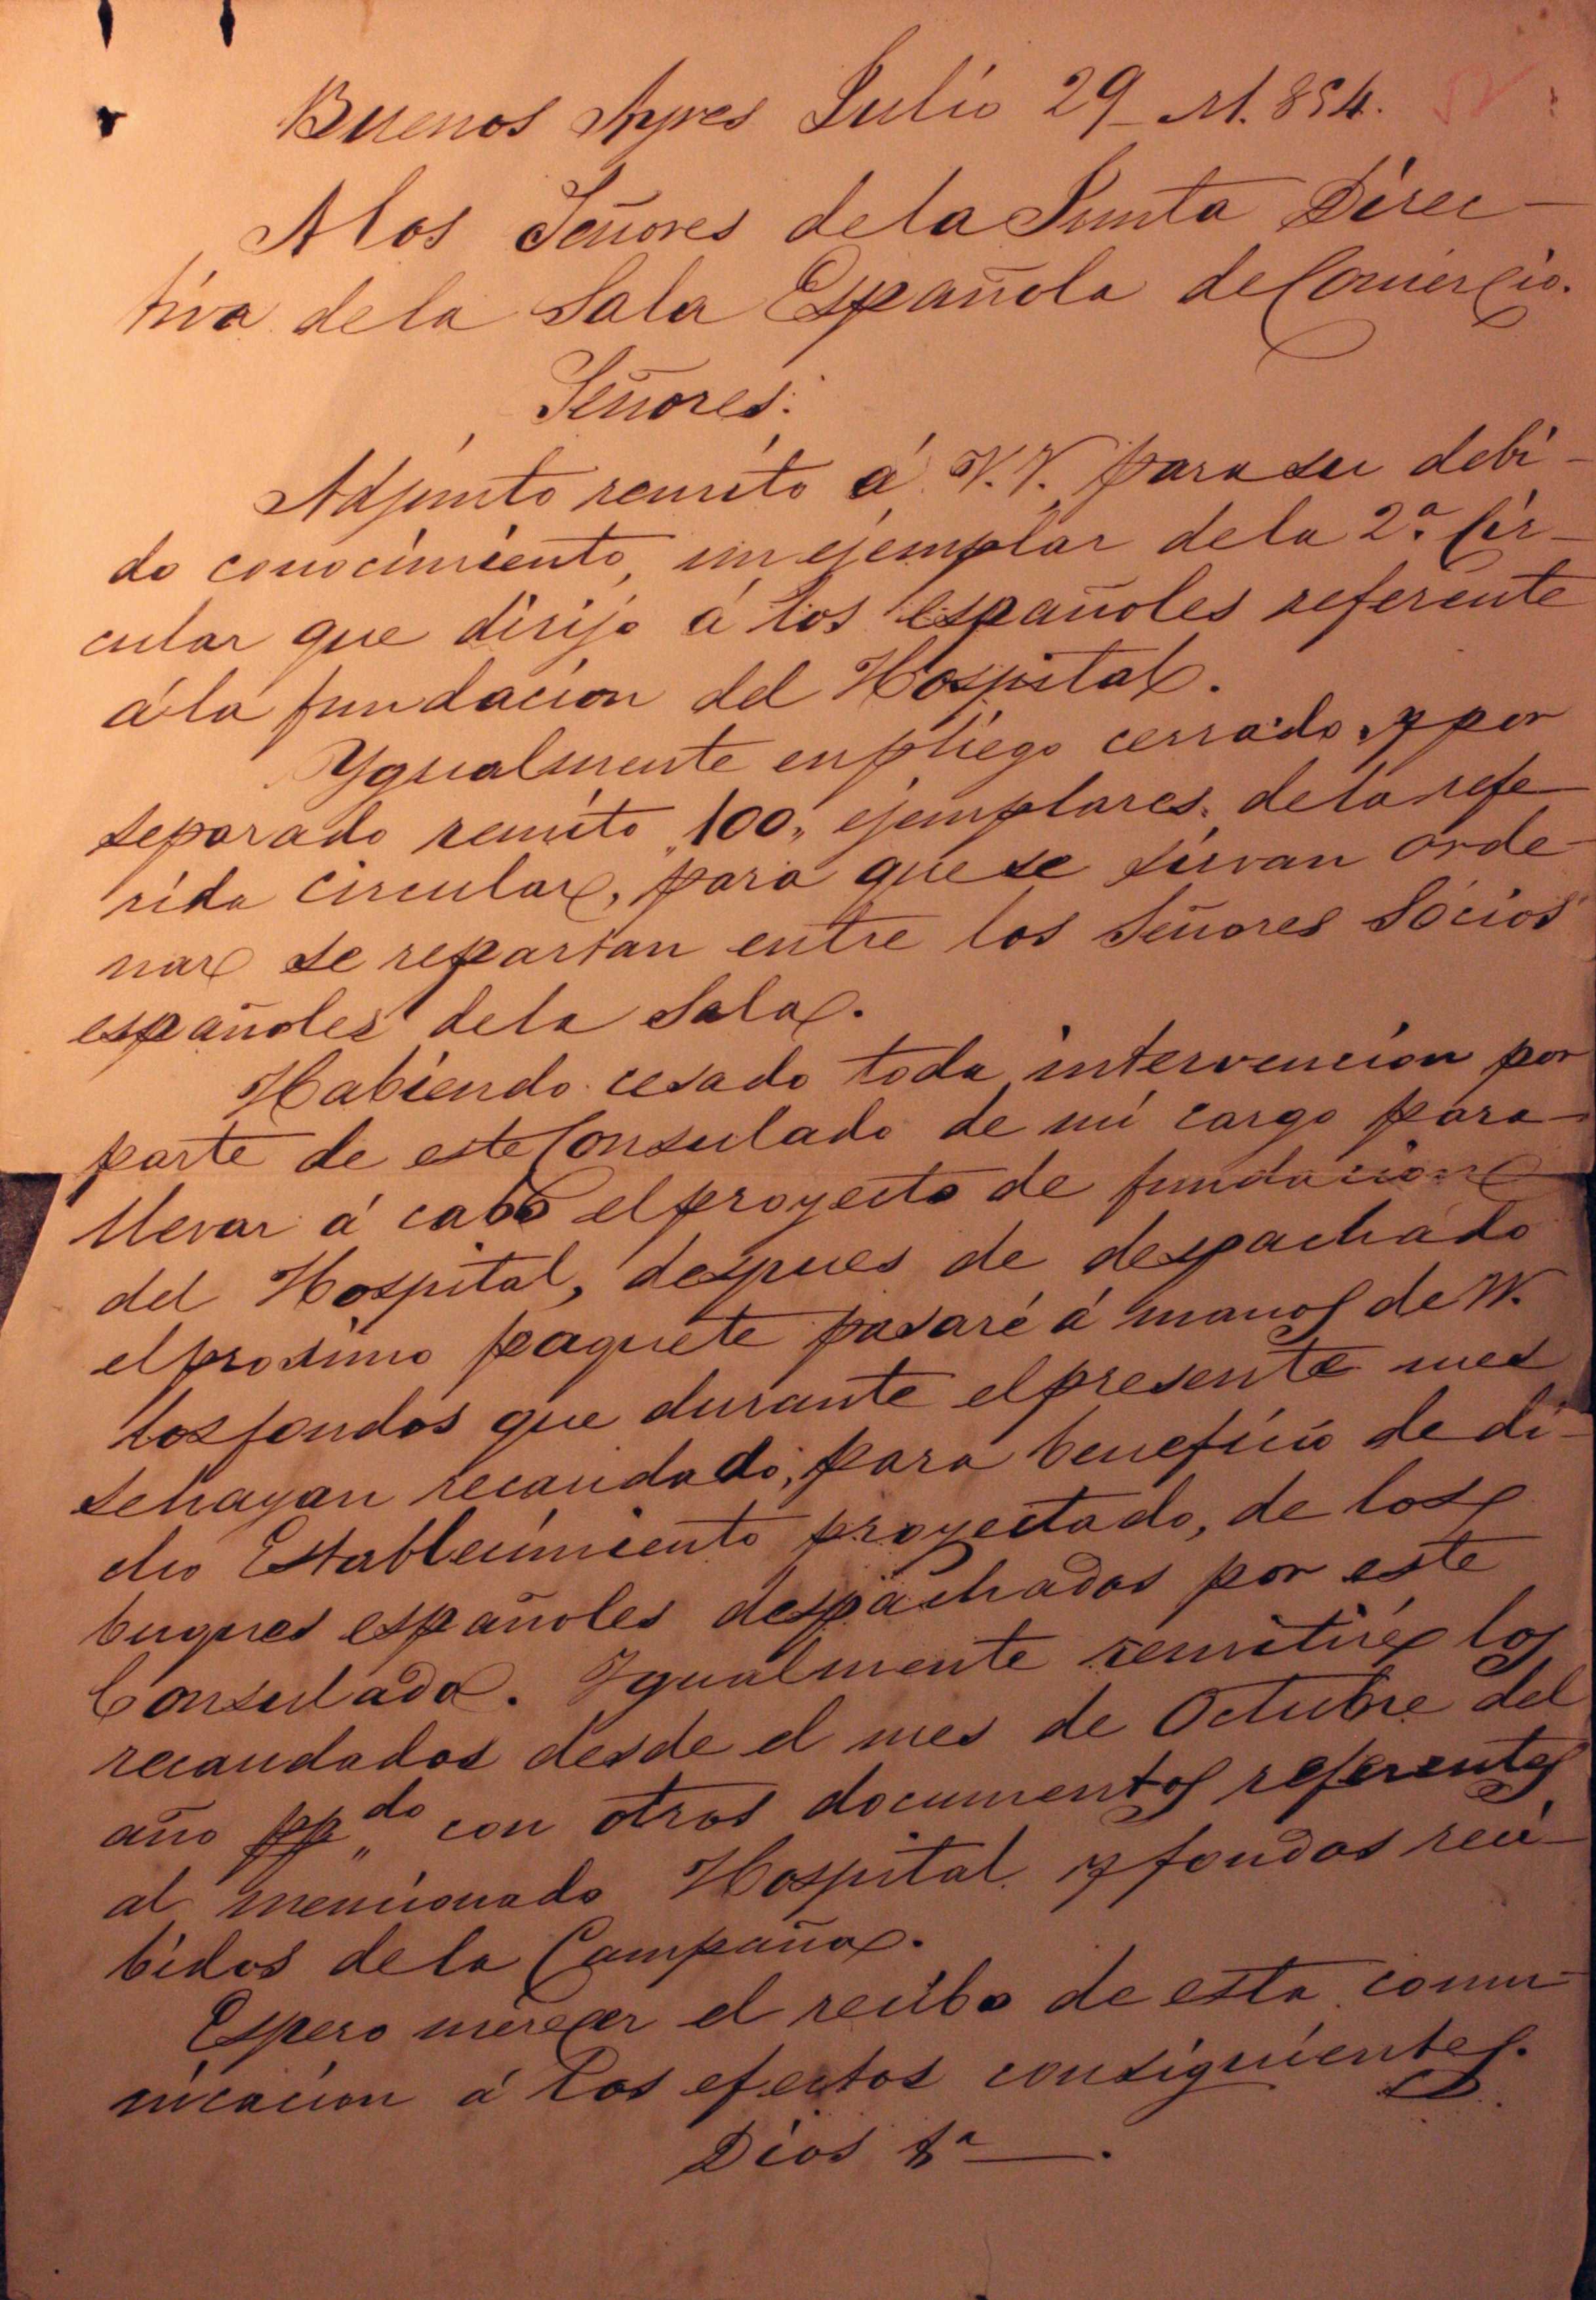 Buenos Ayres Julio 29_ M. 854.
A los Señores de la Junta Direc-
tiva de la Sala Española de Comercio.
Señores:
Adjunto remito á V.V. para su debi-
do conocimiento, un ejemplar de la 2.ª Cir-
cular que dirijo á los españoles referente
á la fundacion del Hospital.
Ygualmente en pliego cerrado y por
separado remito "100" ejemplares de la refe
rida circular, para que se sirvan orde-
nar se repartan entre los Señores Sócios
españoles de la Sala.
Habiendo cesado toda intervencion por
parte de este Consulado de mi cargo para
llevar á cabo el proyecto de fundacion
del Hospital, despues de despachado
el prosimo paquete pasaré á manos de VV.
los fondos que durante el presente mes
se hayan recaudado, para beneficio de di-
cho Establecimiento proyectado, de los
buques españoles despachados por este
Consulado. Ygualmente remitiré los
recaudados desde el mes de Octubre del
año pp,,do con otros documentos referentes
al mencionado Hospital y fondos reci-
bidos de la Campaña.
Espero merecer el recibo de esta comu-
nicacion á los efectos consiguientes.
Dios &ª —.